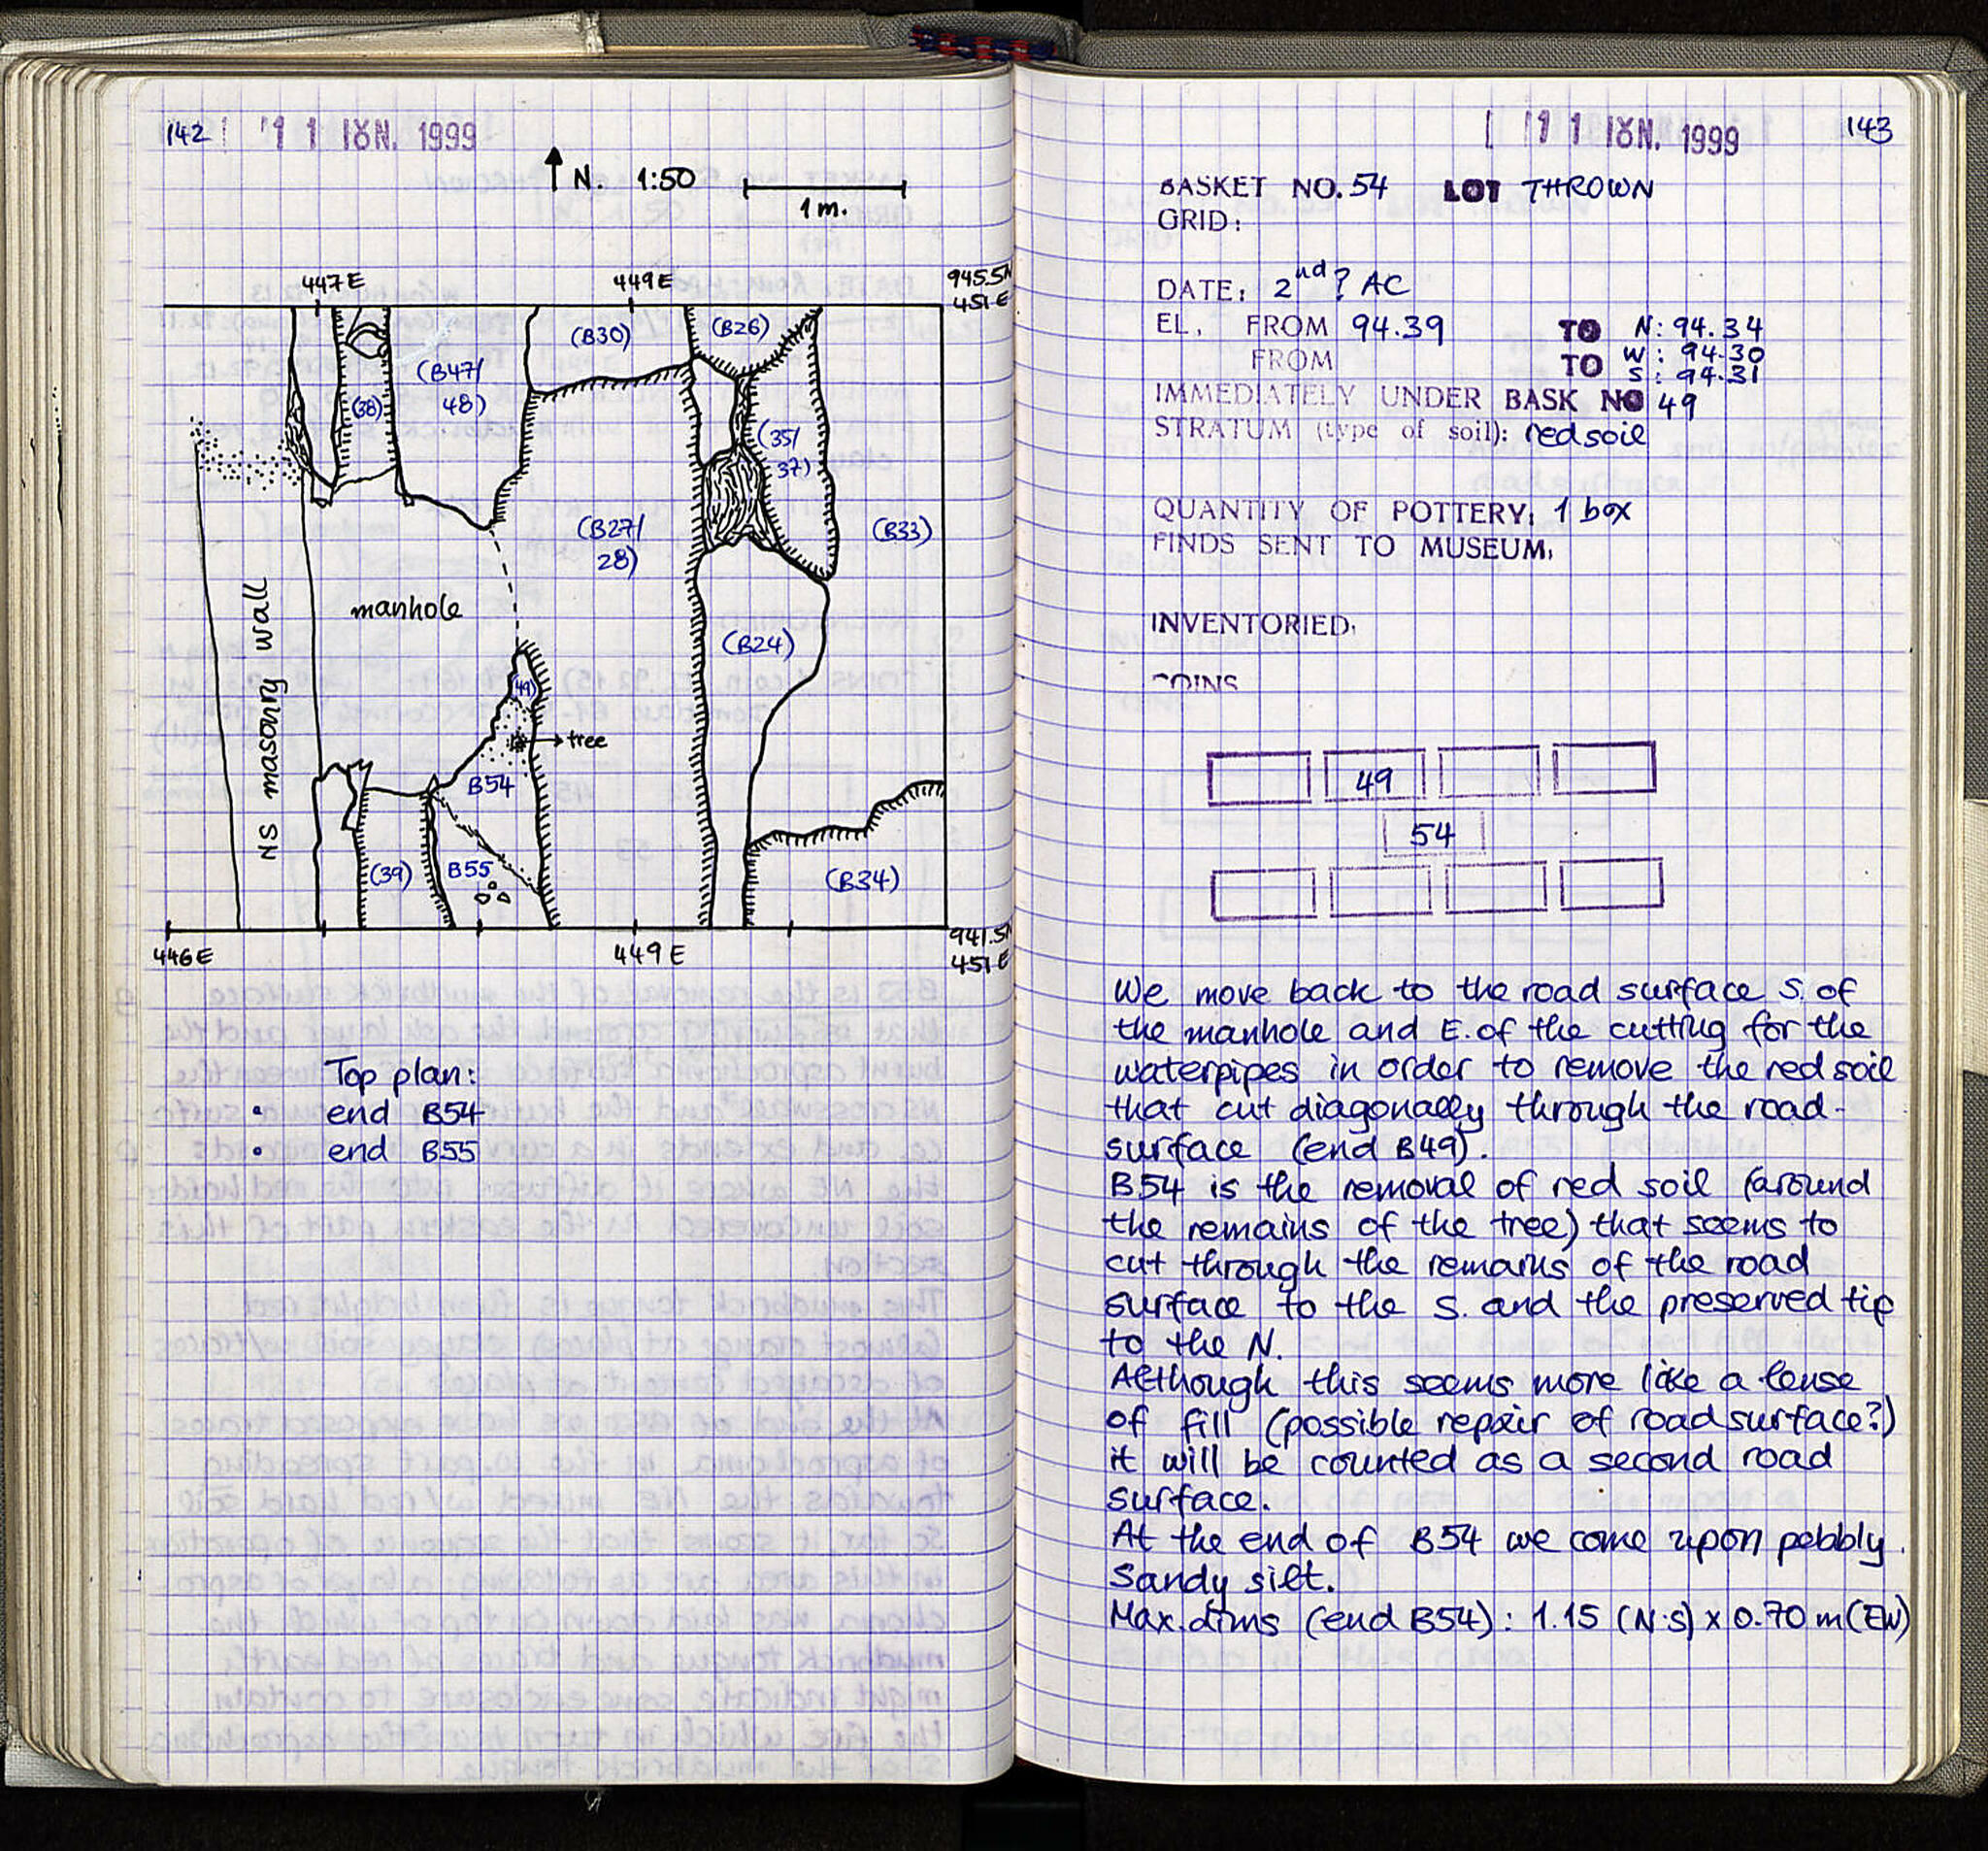 142 11 ΙΟΥΝ. 1999
N. 1:50
1 m.
447E
449E
945.5N
451E
(B30)
(B26)
(B47/
48)
(38)
(35/
37)
(B27/
28)
(B33)
NS masonry wall
manhole
(B24)
(49)
tree
B54
(39)
B55
(B34)
446E
449E
941.5N
451E
Top plan:
• end B54
• end B55
11 ΙΟΥΝ. 1999 143
BASKET NO. 54 LOT THROWN
GRID:
DATE: 2nd? AC
EL, FROM 94.39 TO N: 94.34
FROM TO W: 94.30
S: 94.31
IMMEDIATELY UNDER BASK NO 49
STRATUM (type of soil): red soil
QUANTITY OF POTTERY: 1 box
FINDS SENT TO MUSEUM:
INVENTORIED:
COINS
49
54
We move back to the road surface S. of
the manhole and E. of the cutting for the
waterpipes in order to remove the red soil
that cut diagonally through the road-
surface (end B49).
B54 is the removal of red soil (around
the remains of the tree) that seems to
cut through the remains of the road
surface to the S. and the preserved tip
to the N.
Although this seems more like a lense
of fill (possible repair of road surface?)
it will be counted as a second road
surface.
At the end of B54 we come upon pebbly
sandy silt.
Max. dims (end B54): 1.15 (N-S) x 0.70 m (EW)